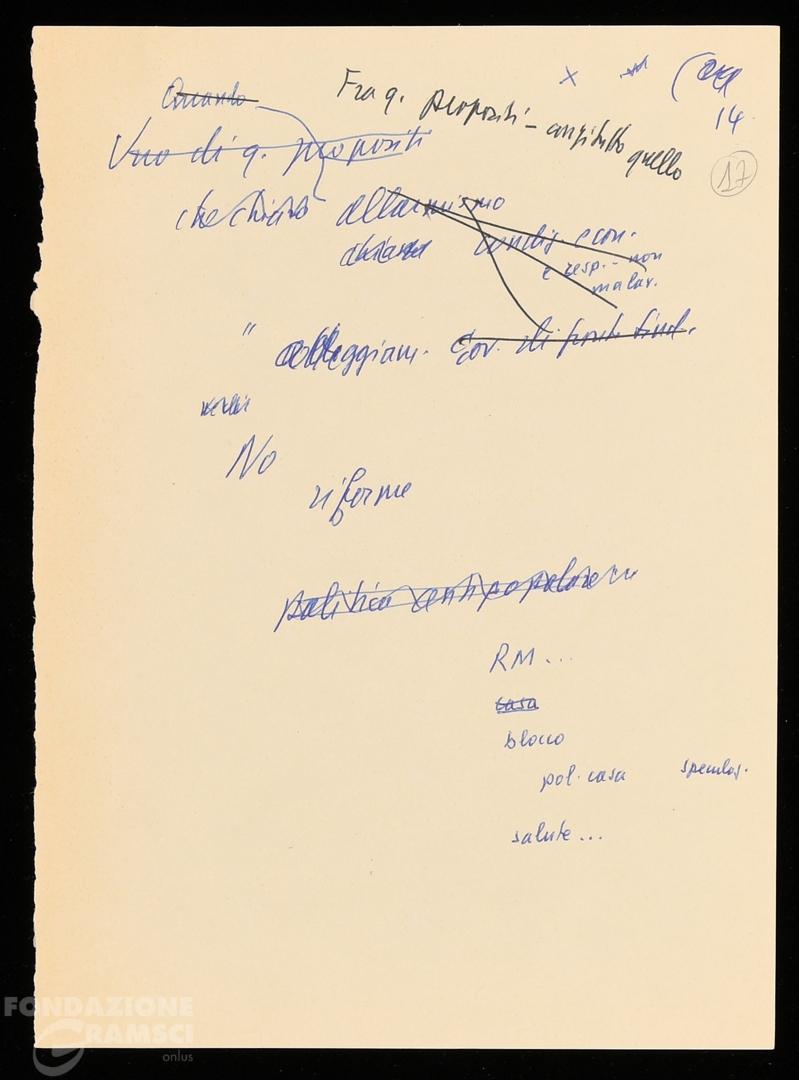 x
14
17
Quando
Fra q. propositi - anzitutto quello
Uno di q. propositi
che chiamo allarmismo
condiz. econ.
e resp. - non
malav.
" atteggiam. Gov. di fronte sind.
No
riforme
politica antipopolare
RM...
casa
blocco
pol. casa speculaz.
salute...
FONDAZIONE
GRAMSCI
onlus